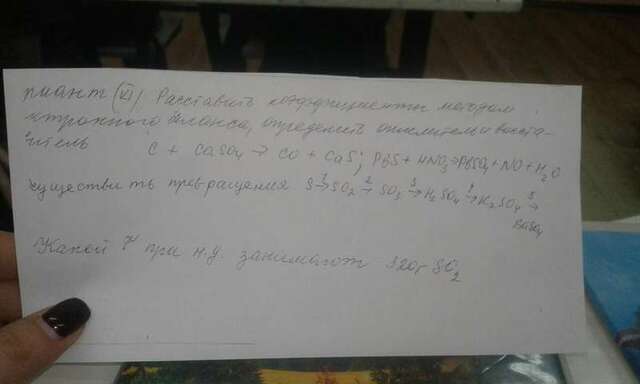 риант (VI) Расставить коэффициенты методом
ктронного баланса, определить окислитель и восста-
витель C + CaSO4 → CO + CaS; PbS + HNO3 → PbSO4 + NO + H2O
существить превращения S →1 SO2 →2 SO3 →3 H2SO4 →4 K2SO4 →5
BaSO4
Какой V при н.у. занимают 320г SO2